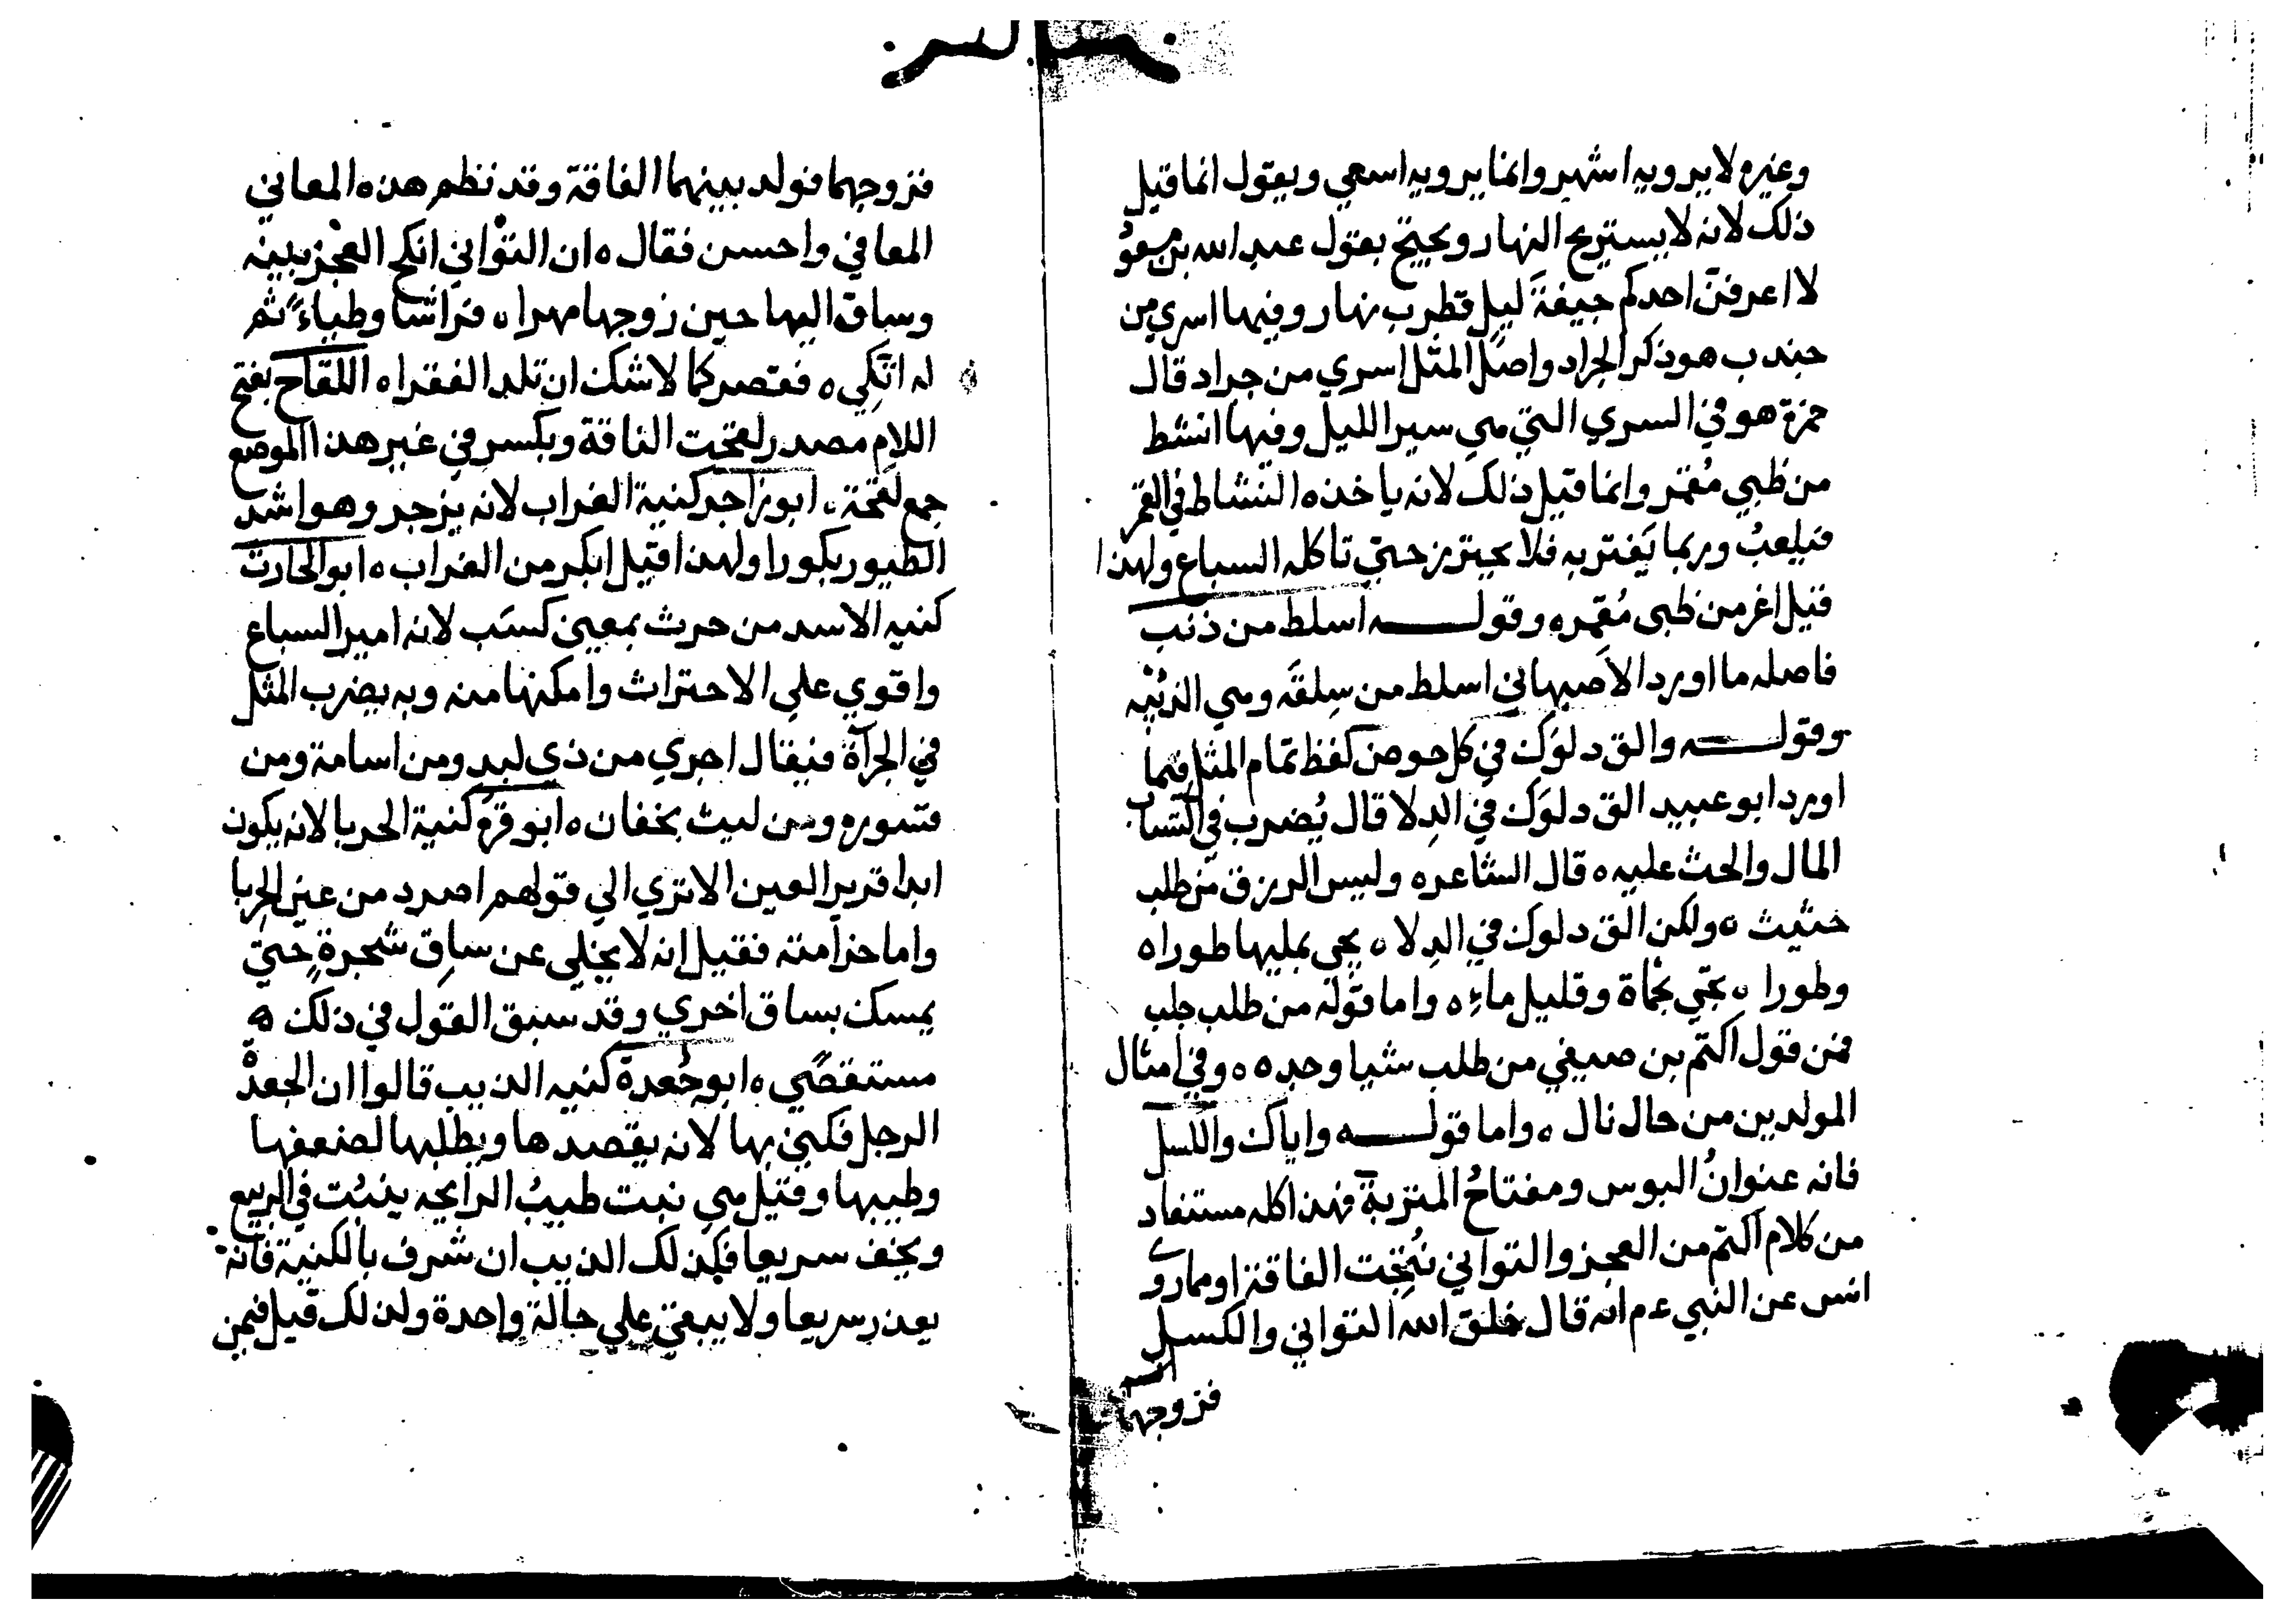 وغيره لا يرويه اشهر وانما يرويه اسعي ويقول انما قيل
ذلك لانه لا يستريح النهار ويحتج بقول عبد الله بن مسعود
لا اعرفنّ احدكم جيفةً ليل قطرب نهار وفيها اسري من
جندب هو ذكر الجراد واصل المثل اسري من جراد قال
حمزة هو في السري التي هي سير الليل وفيها انشط
من ظبي مُقمر وانما قيل ذلك لانه ياخذه النشاط في القمر
فيلعبُ وربما يَغتر به فلا يحترز حتي تاكله السباع ولهذا
قيل اغر من ظبي مُقمر ٥ وقولـــه اسلط من ذئب
فاصله ما اورد الاصبهاني اسلط من سِلقَه وهي الذئبه
وقولـــه والق دلوَك في كل حوض كفظ تمام المثل فيما
اورد ابو عبيد الق دلوَك في الدِلا قال يُضرب في اكتساب
المال والحث عليه ٥ قال الشاعر ٥ وليس الرزق من طلب
حثيث ٥ ولكن الق دلوك في الدلا ٥ يجي بمليها طورا ٥
وطورا ٥ تجي بحمأة وقليل ماء ٥ واما قوله من طلب جلب
فمن قول اكتم بن صيفي من طلب شيا وجده ٥ وفي امثال
المولدين من جال نال ٥ واما قولـــه واياك والكسل
فانه عنوانُ البوس ومفتاحُ المتربة فهذا كله مستفاد
من كلام اكتم من العجز والتواني نُتجت الفاقة او مما روي
انس عن النبي ءم انه قال خلق الله التواني والكسل
فزوجهما
فزوجهما فولد بينهما الفاقة وقد نظم هذه المعاني
المعافي واحسن فقال ٥ ان التواني انكح العجز بنته
وساق اليها حين زوجها مهرا ٥ فراشا وطياءً ثم
له اتّكِي ٥ فقصركما لا شك ان تلد الفقرا ٥ اللقاح بفتح
اللام مصدر لقحت الناقة وبكسر في غير هذا الموضع
جمع لقحة ٥ ابو زاجر كنية الغراب لانه يزجر وهو اشد
الطيور بكورا ولهذا قيل ابكر من الغراب ٥ ابو الحارث
كنيه الاسد من حرث بمعني كسَب لانه امير السباع
واقوي علي الاحتراث وامكنها منه وبه يضرب المثل
في الجرآة فيقال اجري من ذي لبد ومن اسامة ومن
قسوره ومن ليث بخفان ٥ ابو قرة كنية الحربا لانه يكون
ابدا قرير العين الا تري الي قولهم اصرد من عين الحربا
واما حزامته فقيل انه لا يخلي عن ساق شجرةٍ حتي
يمسك بساق اخري وقد سبق القول في ذلك ٥
مستقصًي ٥ ابو جُعدة كنيه الذيب قالوا ان الجعدة
الرجل فكني بها لانه يقصدها ويطلبها لضعفها
وطيبها وقيل هي نبت طيبُ الرايحه ينبُت في الربيع
ويجف سريعا فكذلك الذيب ان شرف بالكنية فانه
يعدر سريعا ولا يبقي علي حالة واحدة ولذلك قيل فيمن